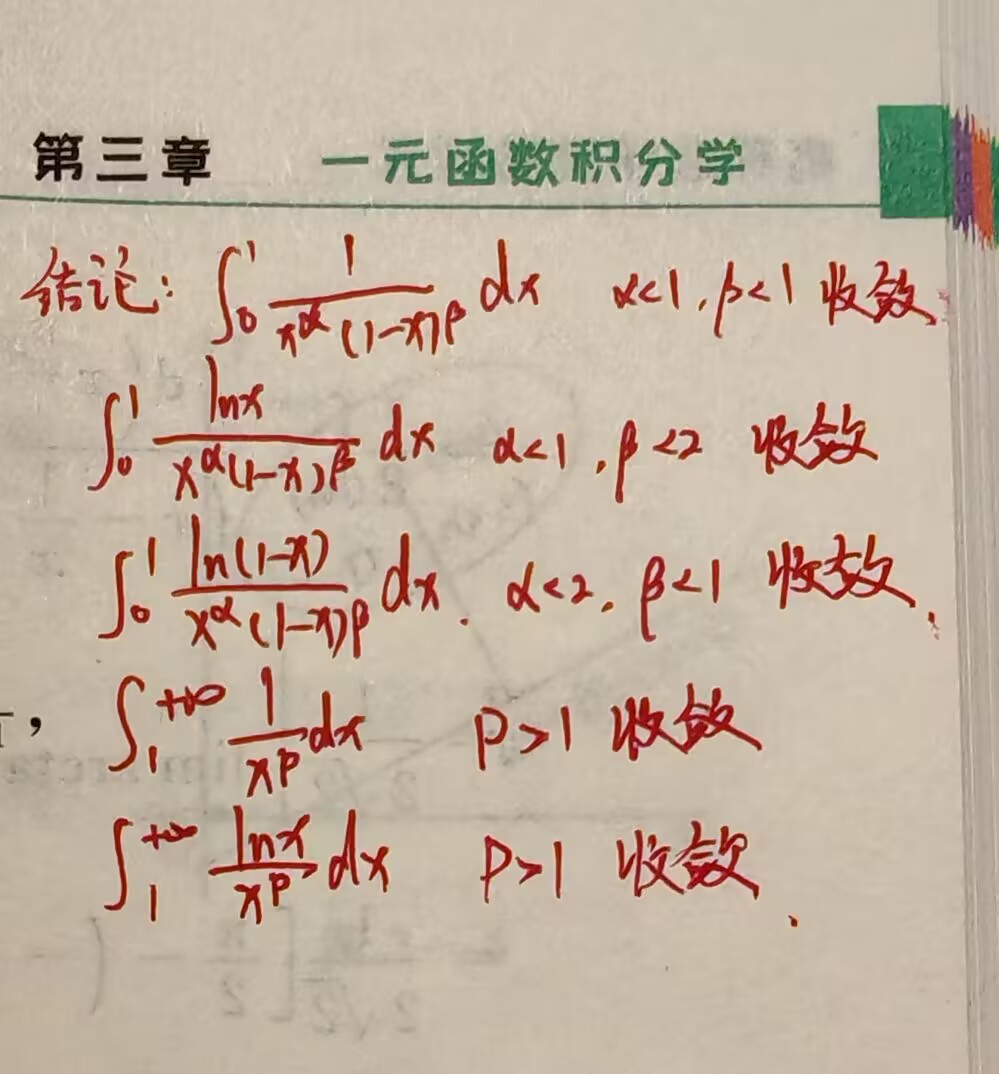 第三章 一元函数积分学
结论: ∫₀¹ 1/(x^α (1-x)^β) dx α<1, β<1 收敛.
∫₀¹ lnx/(x^α(1-x)^β) dx α<1, β<2 收敛
∫₀¹ ln(1-x)/(x^α (1-x)^β) dx. α<2, β<1 收敛.
∫₁^{+∞} 1/x^p dx P>1 收敛
∫₁^{+∞} lnx/x^p dx P>1 收敛.